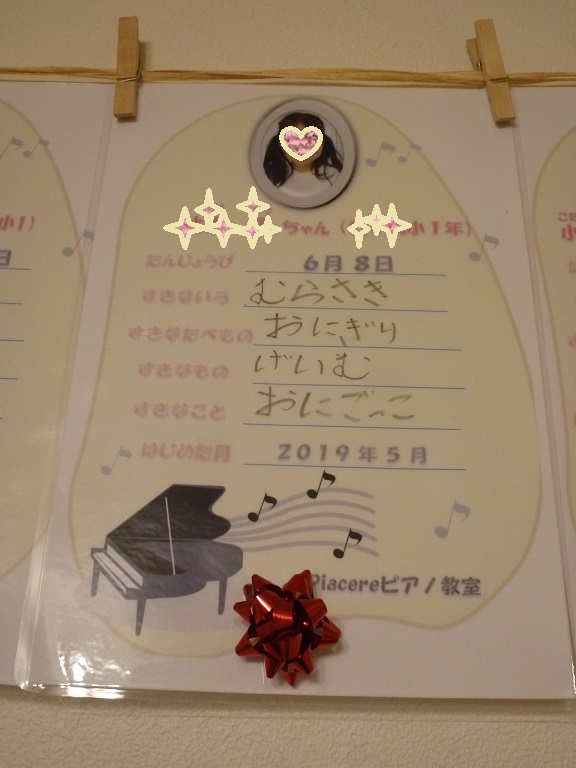 ちゃん(小1年)
たんじょうび 6月8日
すきないろ むらさき
すきなたべもの おにぎり
すきなもの げいむ
すきなこと おにごっこ
はじめた月 2019年5月
Piacereピアノ教室
小1)
日